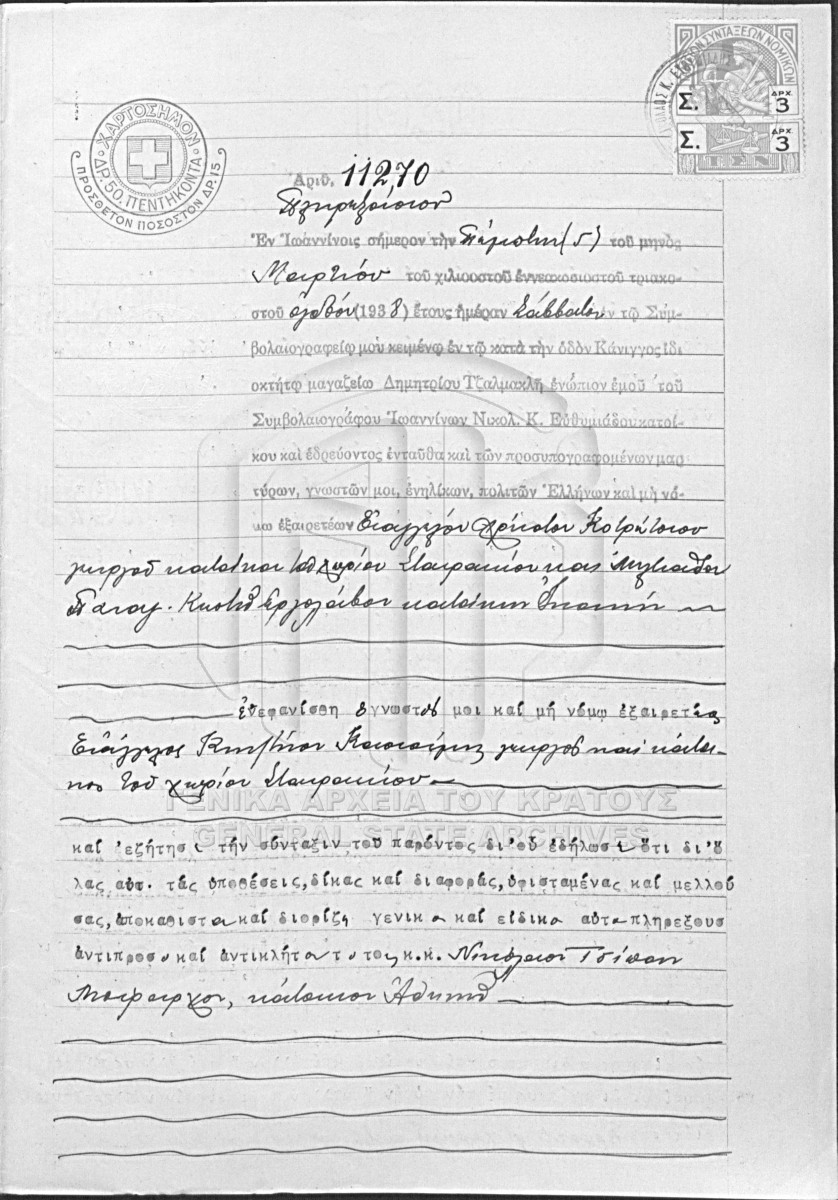 ΧΑΡΤΟΣΗΜΟΝ
ΔΡ. 50. ΠΕΝΤΗΚΟΝΤΑ
ΠΡΟΣΘΕΤΟΝ ΠΟΣΟΣΤΟΝ ΔΡ. 15
ΣΥΝΤΑΞΕΩΝ ΝΟΜΙΚΩΝ
Σ. ΔΡΧ. 3
Σ. ΔΡΧ. 3
Ἀριθ. 11270
Πληρεξούσιον
Ἐν Ἰωαννίνοις σήμερον τὴν Πέμπτην (5) τοῦ μηνὸς
Μαρτίου τοῦ χιλιοστοῦ ἐννεακοσιοστοῦ τριακο-
στοῦ ὀγδόου (1938) ἔτους ἡμέραν Σάββατον ἐν τῷ Συμ-
βολαιογραφείῳ μου κειμένῳ ἐν τῷ κατὰ τὴν ὁδὸν Κάνιγγος ἰδι
οκτήτῳ μαγαζείῳ Δημητρίου Τζαλμακλῆ ἐνώπιον ἐμοῦ τοῦ
Συμβολαιογράφου Ἰωαννίνων Νικολ. Κ. Εὐθυμιάδου κατοί-
κου καὶ ἑδρεύοντος ἐνταῦθα καὶ τῶν προσυπογραφομένων μαρ
τύρων, γνωστῶν μοι, ἐνηλίκων, πολιτῶν Ἑλλήνων καὶ μὴ νό-
μῳ ἐξαιρετέων Εὐαγγέλου Χρήστου
γεωργοῦ κατοίκου τοῦ χωρίου Σταυρακίου καὶ Μιλτιάδου
Παναγ. Κωστῆ Ἐργολάβου κατοίκου
ἐνεφανίσθη ὁ γνωστός μοι καὶ μή νόμῳ ἐξαιρετέος
Εὐάγγελος γεωργὸς καὶ κάτοι-
κος τοῦ χωρίου Σταυρακίου
ΓΕΝΙΚΑ ΑΡΧΕΙΑ ΤΟΥ ΚΡΑΤΟΥΣ
GENERAL STATE ARCHIVES
καί ἐζήτησε τήν σύνταξιν τοῦ παρόντος δι'οὗ ἐδήλωσε ὅτι δι'ὅ
λας αὐτ. τάς ὑποθέσεις, δίκας καί διαφοράς, ὑφισταμένας καί μελλού
σας, ἀποκαθιστᾶ καί διορίζει γενικο καί εἰδικο αὐτο πληρεξουσ
ἀντιπροσ. καί ἀντικλητο το τον κ.κ. Νικόλαον Τσίπαν
Μοίραρχον, κάτοικον Ἀθηνῶν